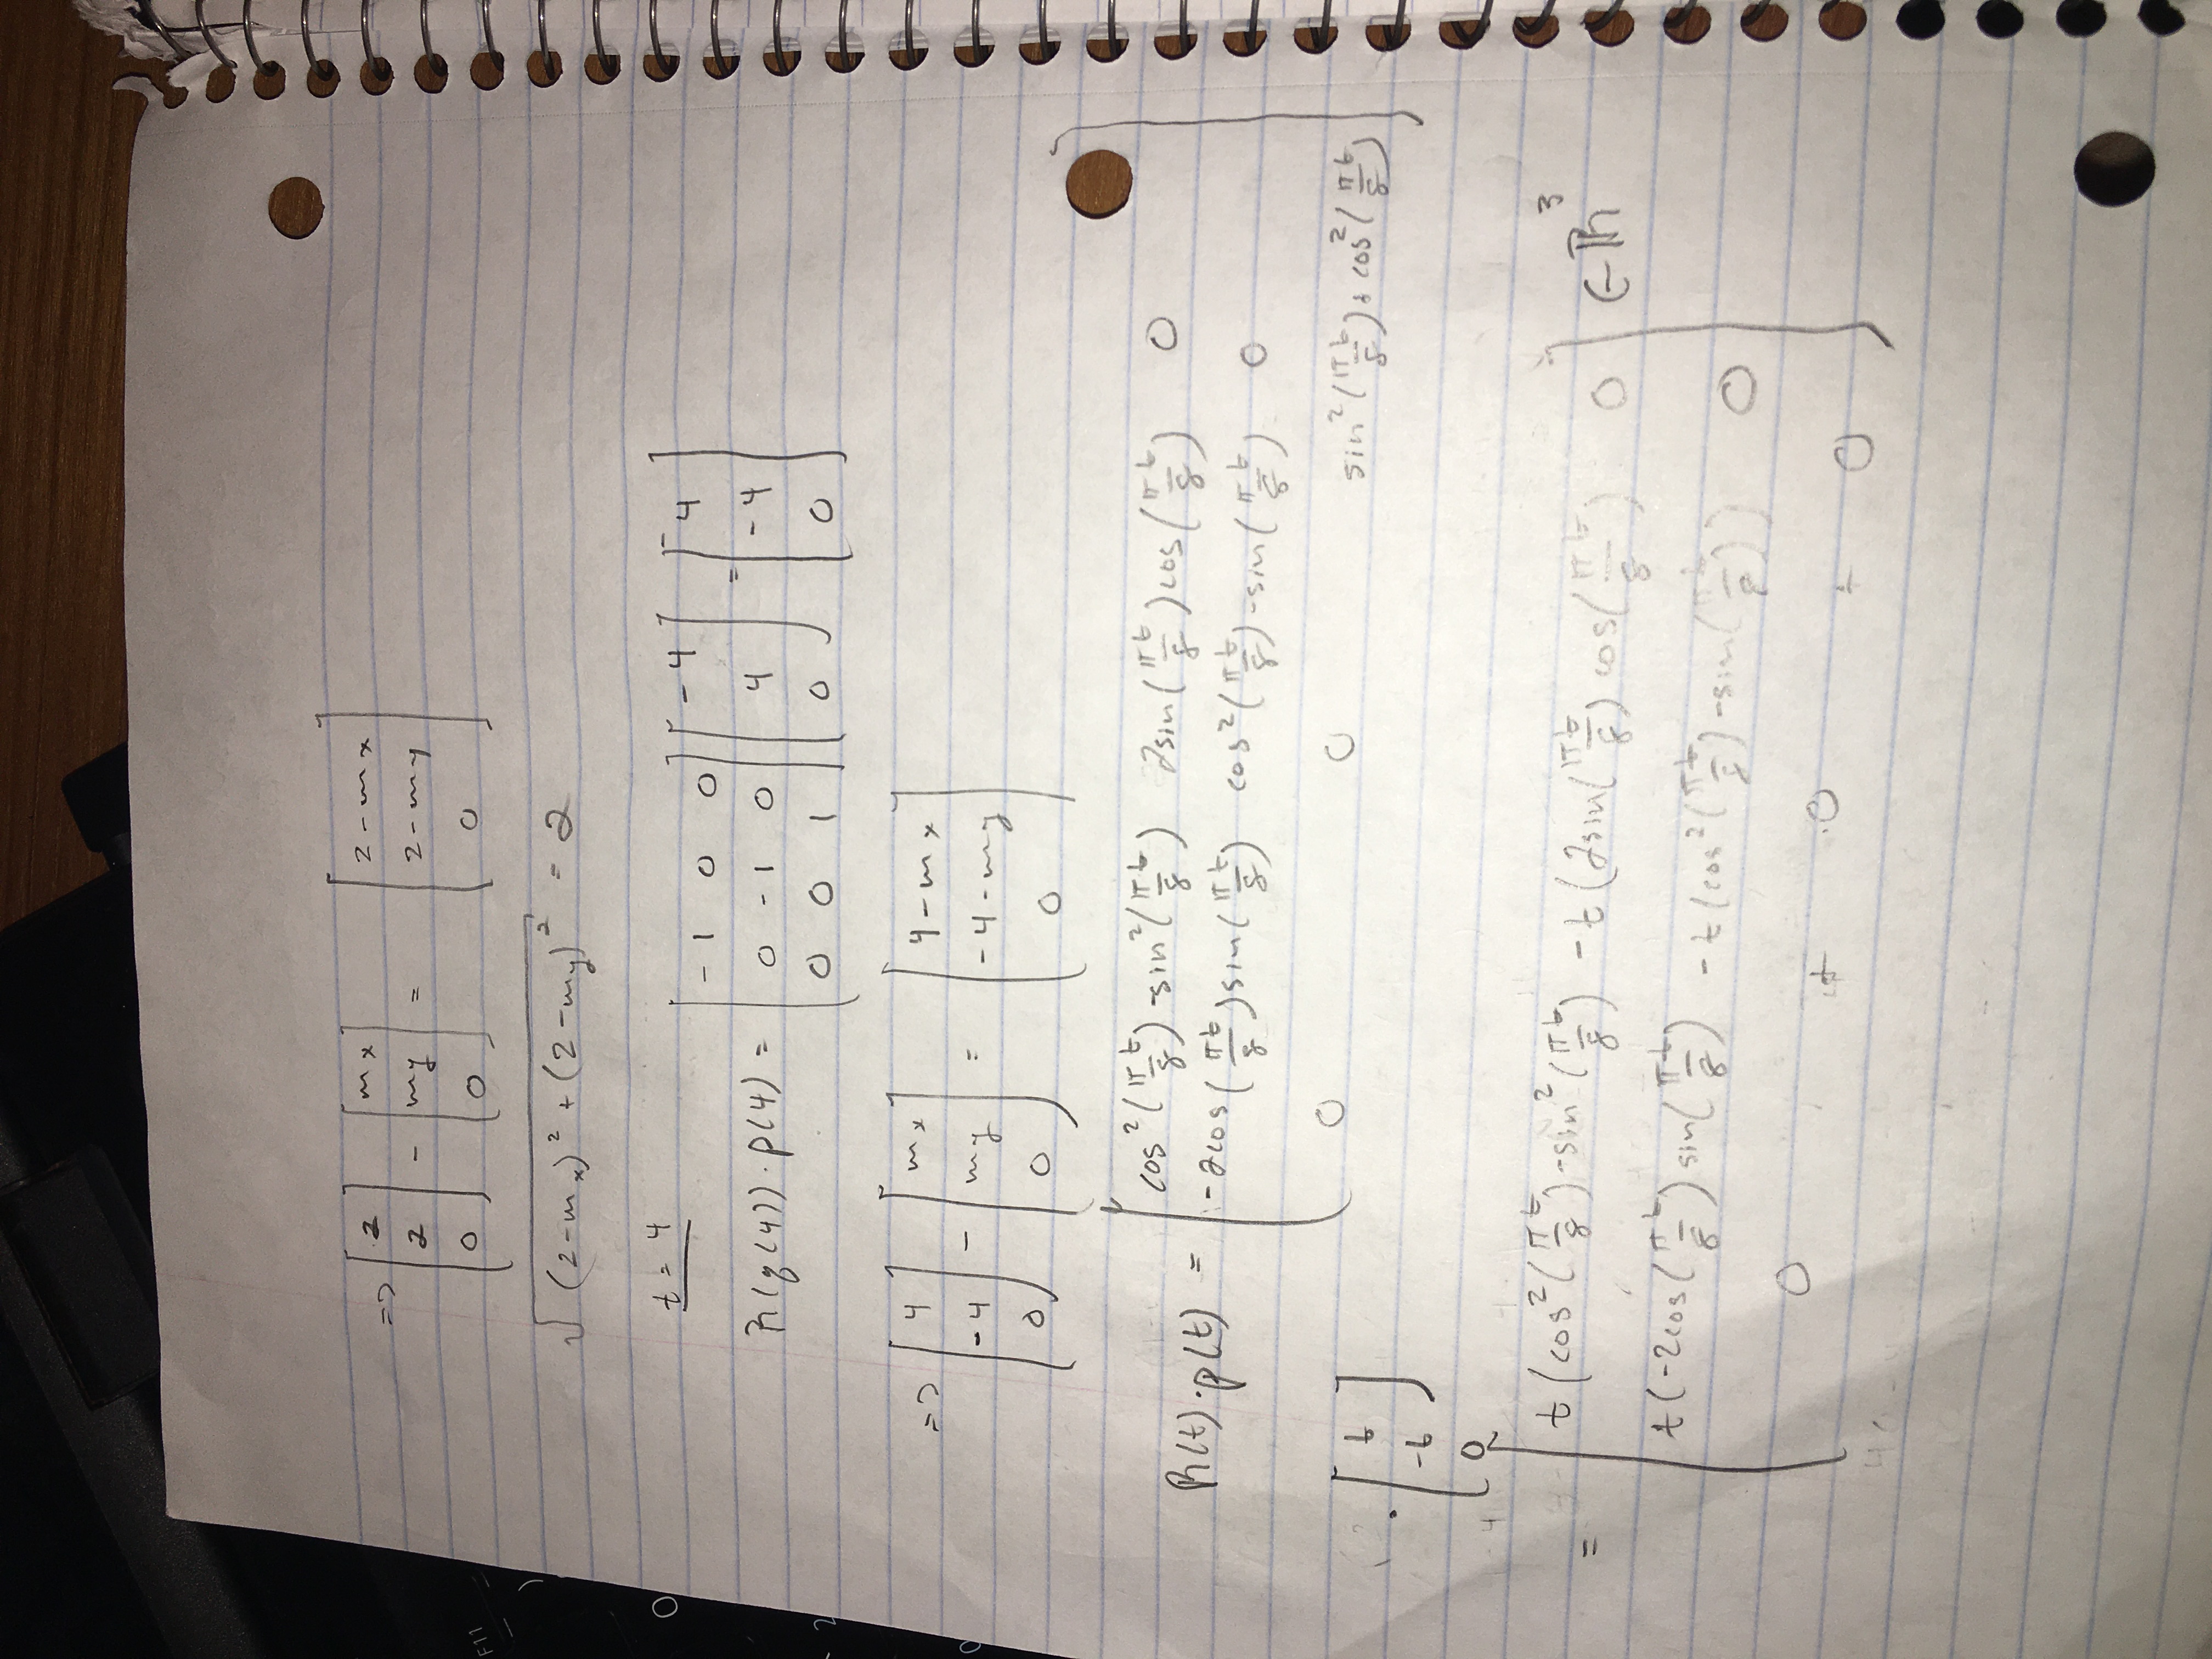 => [2 2 0] - [mx my 0] = [2-mx 2-my 0]
√((2-mx)² + (2-my)²) = 2
t = 4
R(q(4)) · p(4) = [-1 0 0; 0 -1 0; 0 0 1] [-4 4 0] = [4 -4 0]
=> [4 -4 0] - [mx my 0] = [4-mx -4-my 0]
R(t) · p(t) = [cos²(πt/8) - sin²(πt/8) 2sin(πt/8)cos(πt/8) 0
-2cos(πt/8)sin(πt/8) cos²(πt/8) - sin(πt/8) 0
0 0 sin²(πt/8) + cos²(πt/8)]
· [t -t 0]
= [t(cos²(πt/8) - sin²(πt/8) -t(2sin(πt/8)cos(πt/8) 0
t(-2cos(πt/8)sin(πt/8) -t(cos²(πt/8) - sin(πt/8)) 0
0 + 0 + 0] ∈ ℝ³
F11
0
2